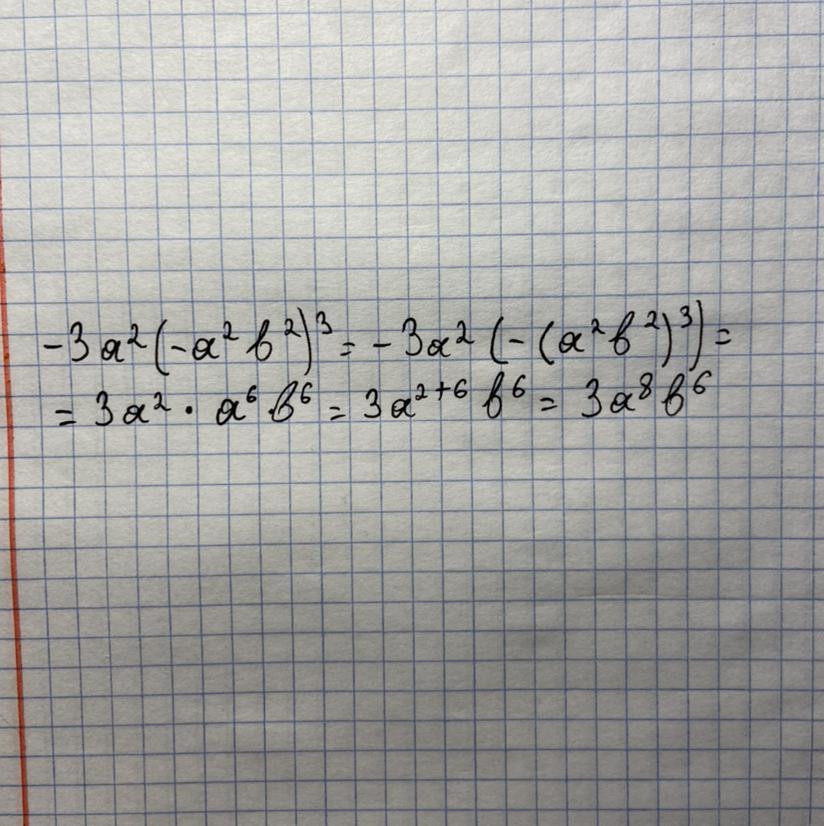 -3a²(-a²b²)³ = -3a²(-(a²b²)³) =
= 3a² · a⁶b⁶ = 3a²⁺⁶b⁶ = 3a⁸b⁶